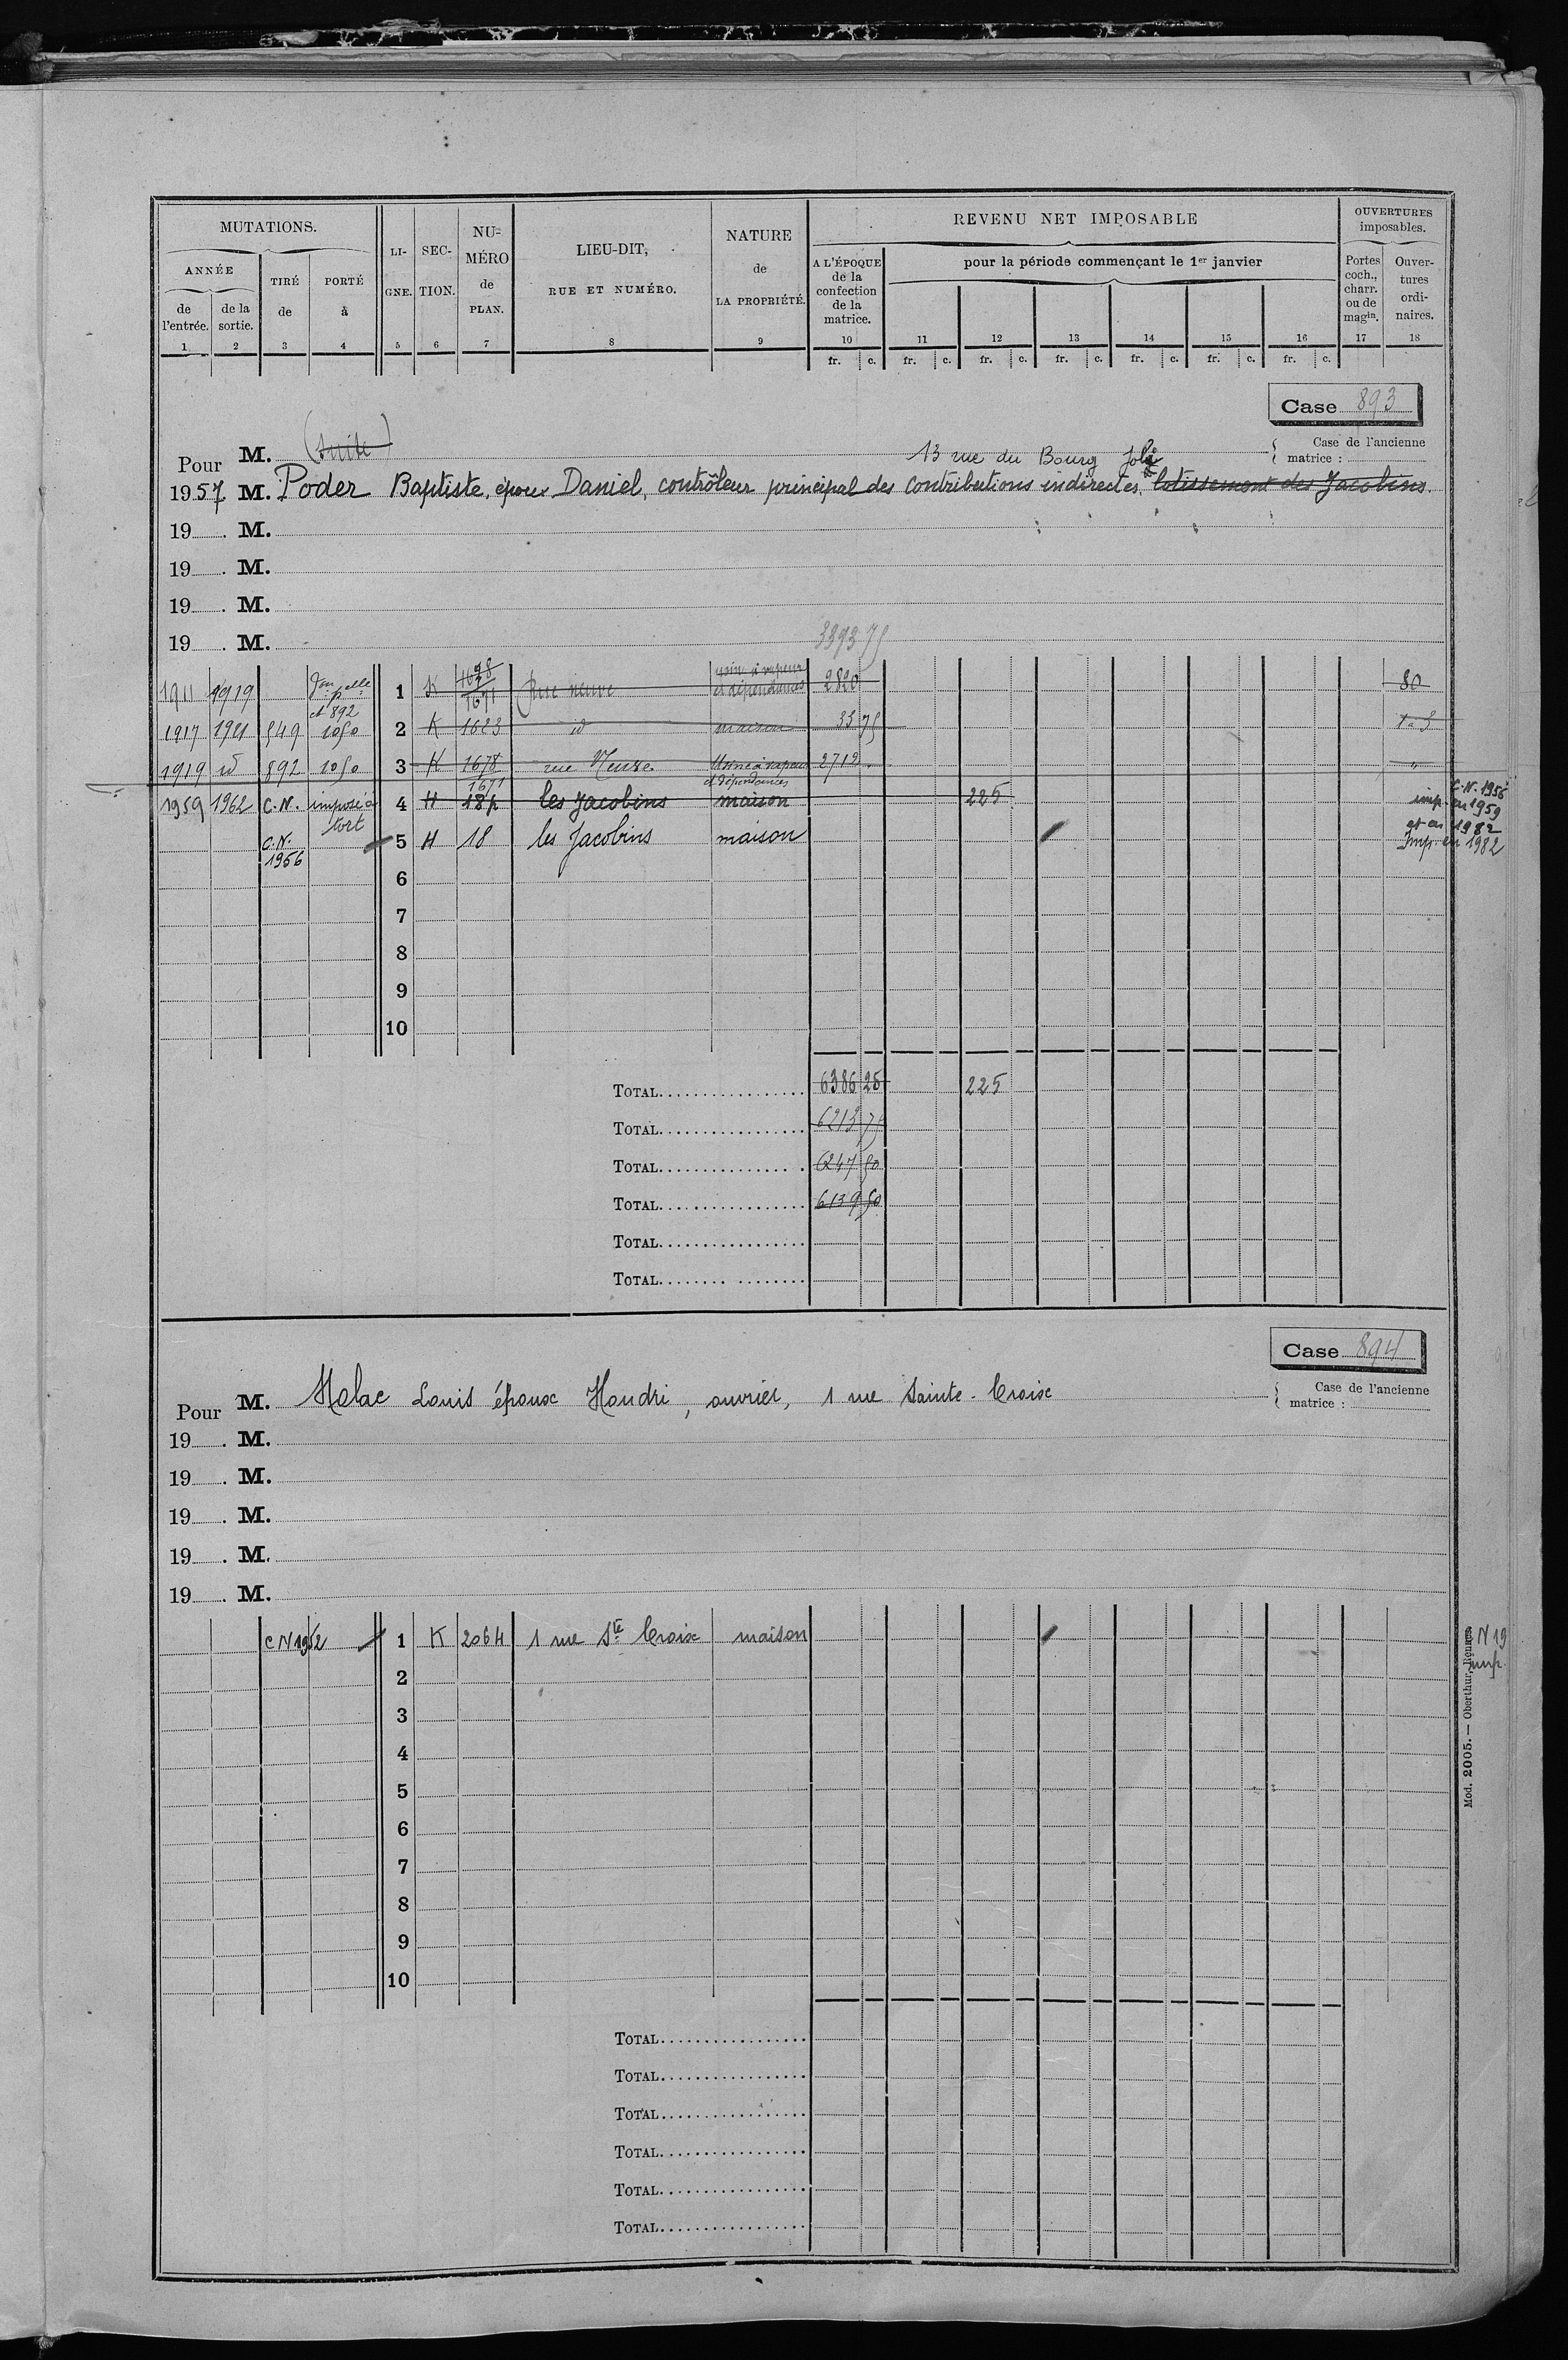 MUTATIONS.
ANNÉE
de l'entrée.
de la sortie.
TIRÉ de
PORTÉ à
LI-GNE.
SEC-TION.
NU-MÉRO de PLAN.
LIEU-DIT, RUE ET NUMÉRO.
NATURE de LA PROPRIÉTÉ.
REVENU NET IMPOSABLE
A L'ÉPOQUE de la confection de la matrice.
pour la période commençant le 1er janvier
OUVERTURES imposables.
Portes coch., charr. ou de magin.
Ouver-tures ordi-naires.
1 2 3 4 5 6 7 8 9 10 11 12 13 14 15 16 17 18
fr. c. fr. c. fr. c. fr. c. fr. c. fr. c. fr. c.
Case 893
Case de l'ancienne matrice :
Pour M. (suite)
13 rue du Bourg Joli
1957 M. Poder Baptiste, époux Daniel, contrôleur principal des contributions indirectes, lotissement des Jacobins.
19 . M.
19 . M.
19 . M.
19 . M.
3393 75
1911 1919 et 892 1 K 1678 1671 Rue neuve usine à vapeur et dépendances 2820 80
1917 1921 549 1050 2 K 1623 id maison 33 75
1919 id 892 1050 3 K 1678 1671 rue Neuve Usine à vapeur et dépendances 2712 "
1959 1962 C.N. imposé à tort 4 H 18p les Jacobins maison 225 C.N. 1956 imp. en 1959 et en 1982
C.N. 1956 5 H 18 les Jacobins maison Imp. en 1982
6
7
8
9
10
TOTAL 6386 25 225
TOTAL 6213 75
TOTAL 6247 50
TOTAL 6139 50
TOTAL
TOTAL
Case 894
Case de l'ancienne matrice :
Pour M. Malac Louis époux Houdri, ouvrier, 1 rue Sainte-Croix
19 . M.
19 . M.
19 . M.
19 . M.
19 . M.
CN 1952 1 K 2064 1 rue Ste Croix maison N 19 imp.
2
3
4
5
6
7
8
9
10
TOTAL
TOTAL
TOTAL
TOTAL
TOTAL
TOTAL
Mod. 2005. — Oberthur, Rennes